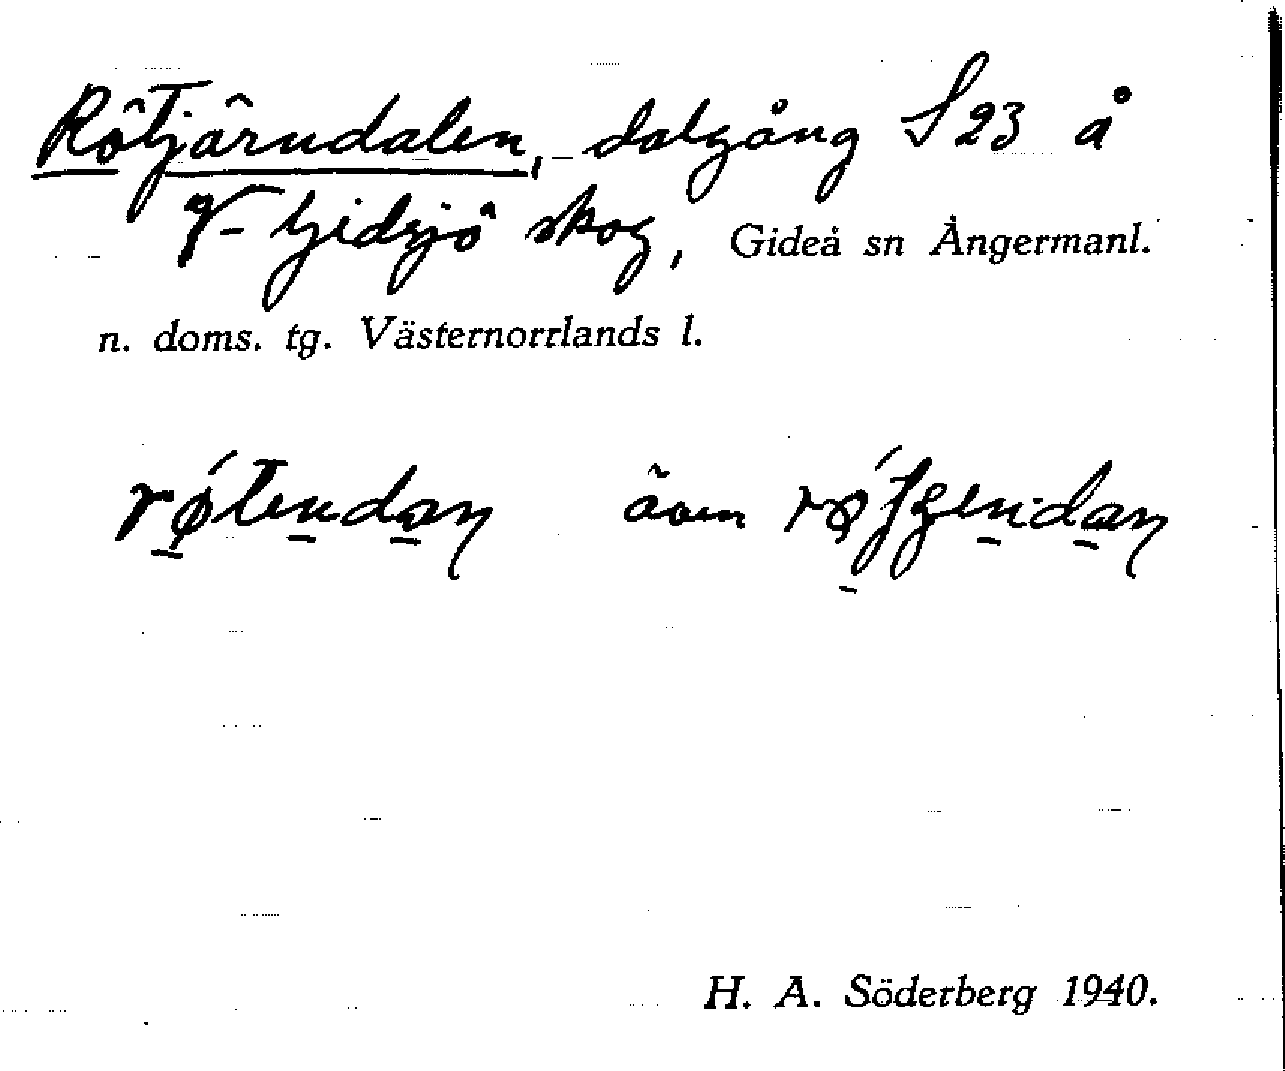 Rötjärndalen, dalgång S 23 å
V- Gidsjö skog, Gideå sn Ångermanl.
n. doms. tg. Västernorrlands l.
även
H. A. Söderberg 1940.